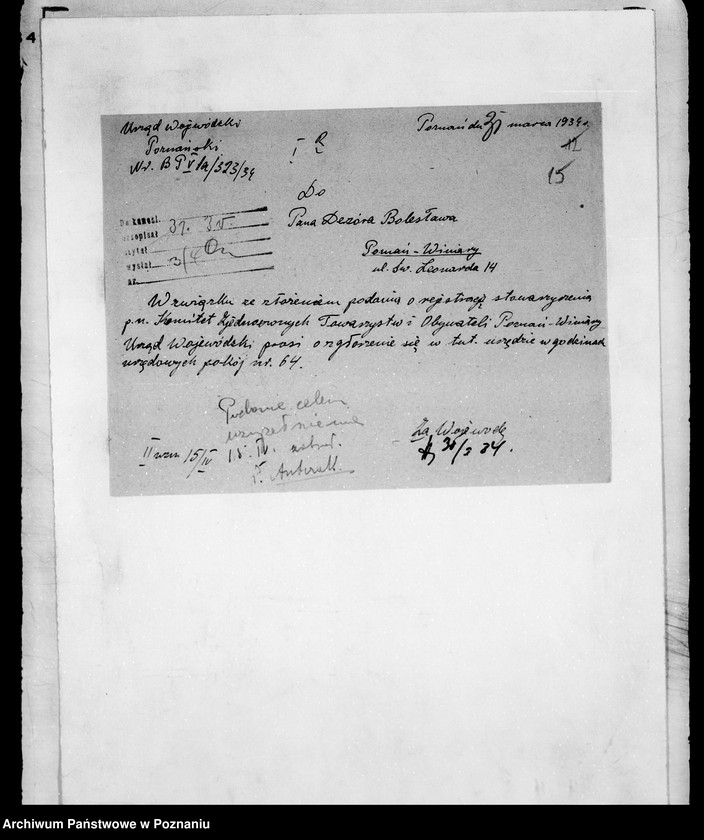 4
Urząd Wojewódzki
Poznański
Nr. B P V 1a/323/34
I
Poznań dn. marca 1934 r.
12
15
Do
Pana Dezóra Bolesława
Poznań-Winiary
ul. Św. Leonarda 14
Do kancel.
przepisał 31.
czytał
wysłał 3/4
nr.
W związku ze złożeniem podania o rejstrację stowarzyszenia
p.n. Komitet Zjednoczonych Towarzystw i Obywateli Poznań-Winiary
Urząd Wojewódzki prosi o zgłoszenie się w tut. urzędzie w godzinach
urzędowych pokój nr. 64.
Podanie celem
uzupełnienia
15. IV. zabrał.
II wzn 15/IV
Za Wojewodę
30/3 34.
Archiwum Państwowe w Poznaniu